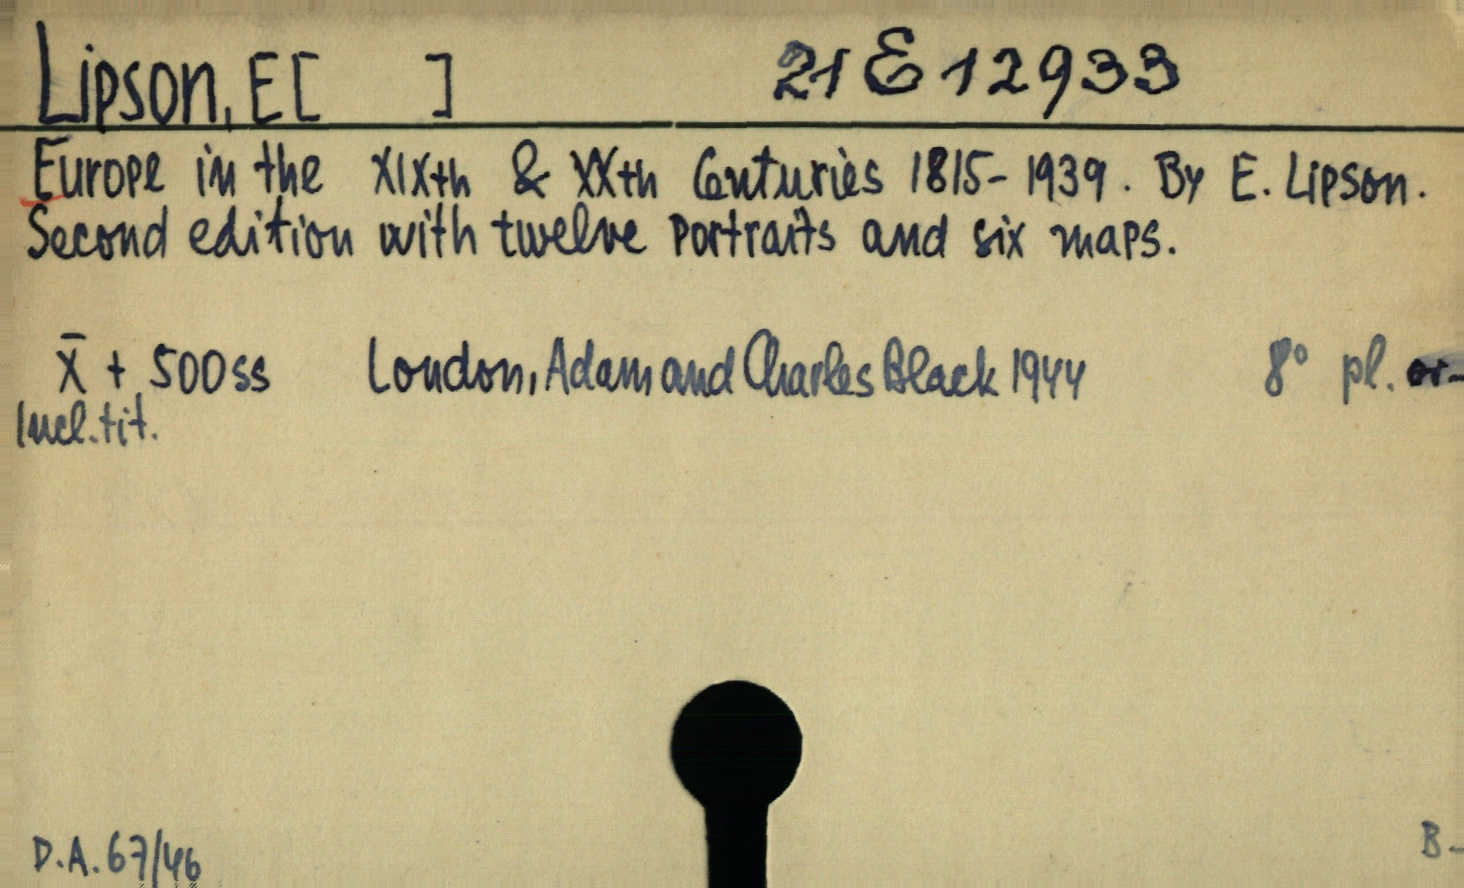 Lipson, E[ ] 21 E 12933
Europe in the XIXth & XXth Centuries 1815-1939. By E. Lipson.
Second edition with twelve portraits and six maps.
X̄ + 500 ss London, Adam and Charles Black 1944 8° pl. or-
Incl. tit.
D.A. 67/46 B-